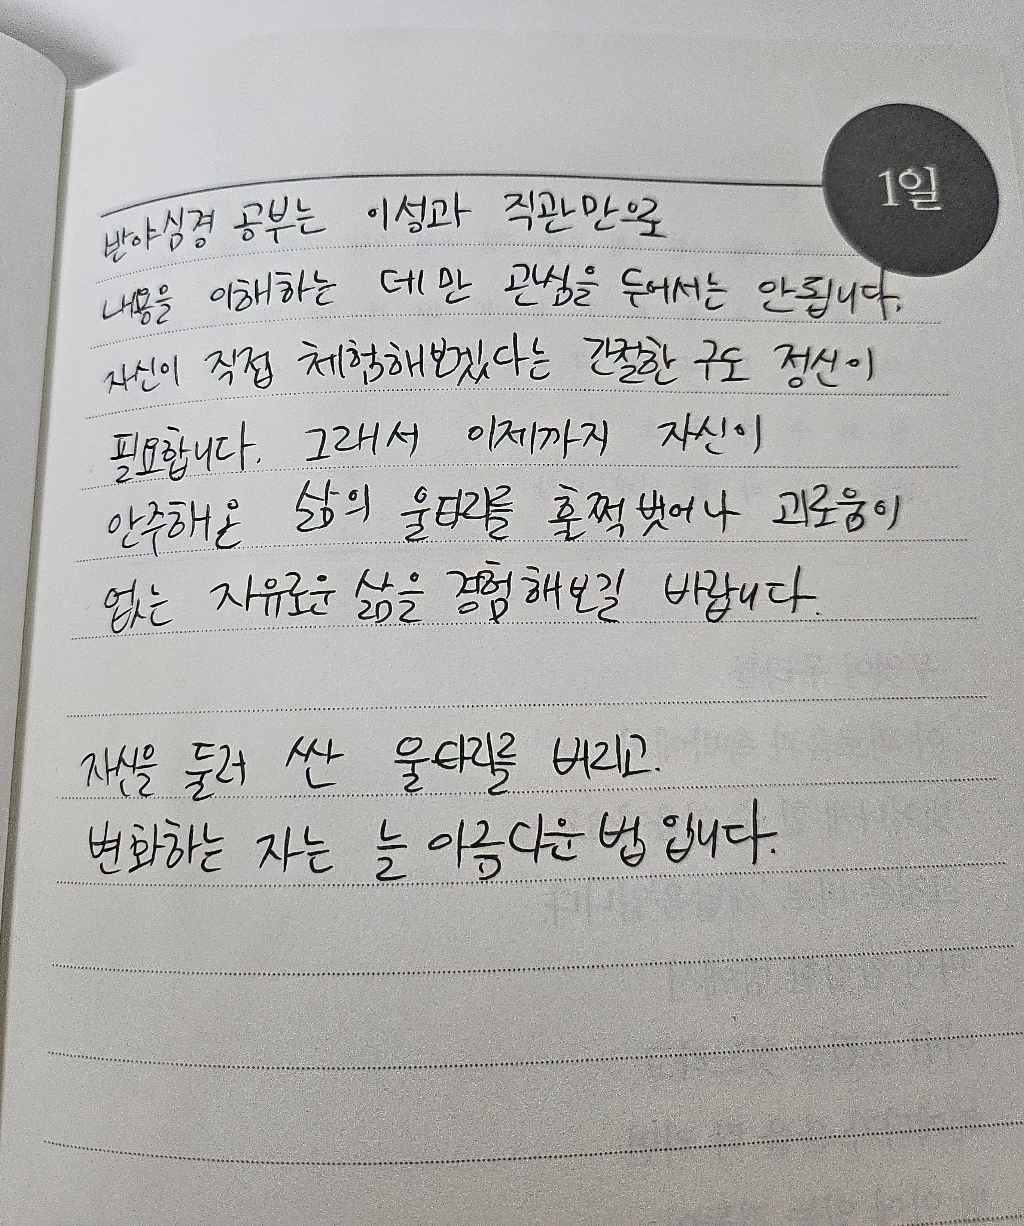 1일
반야심경 공부는 이성과 직관만으로
내용을 이해하는 데만 관심을 두어서는 안됩니다.
자신이 직접 체험해보겠다는 간절한 구도 정신이
필요합니다. 그래서 이제까지 자신이
안주해온 삶의 울타리를 훌쩍 벗어나 괴로움이
없는 자유로운 삶을 경험해보길 바랍니다.
자신을 둘러 싼 울타리를 버리고.
변화하는 자는 늘 아름다운 법입니다.